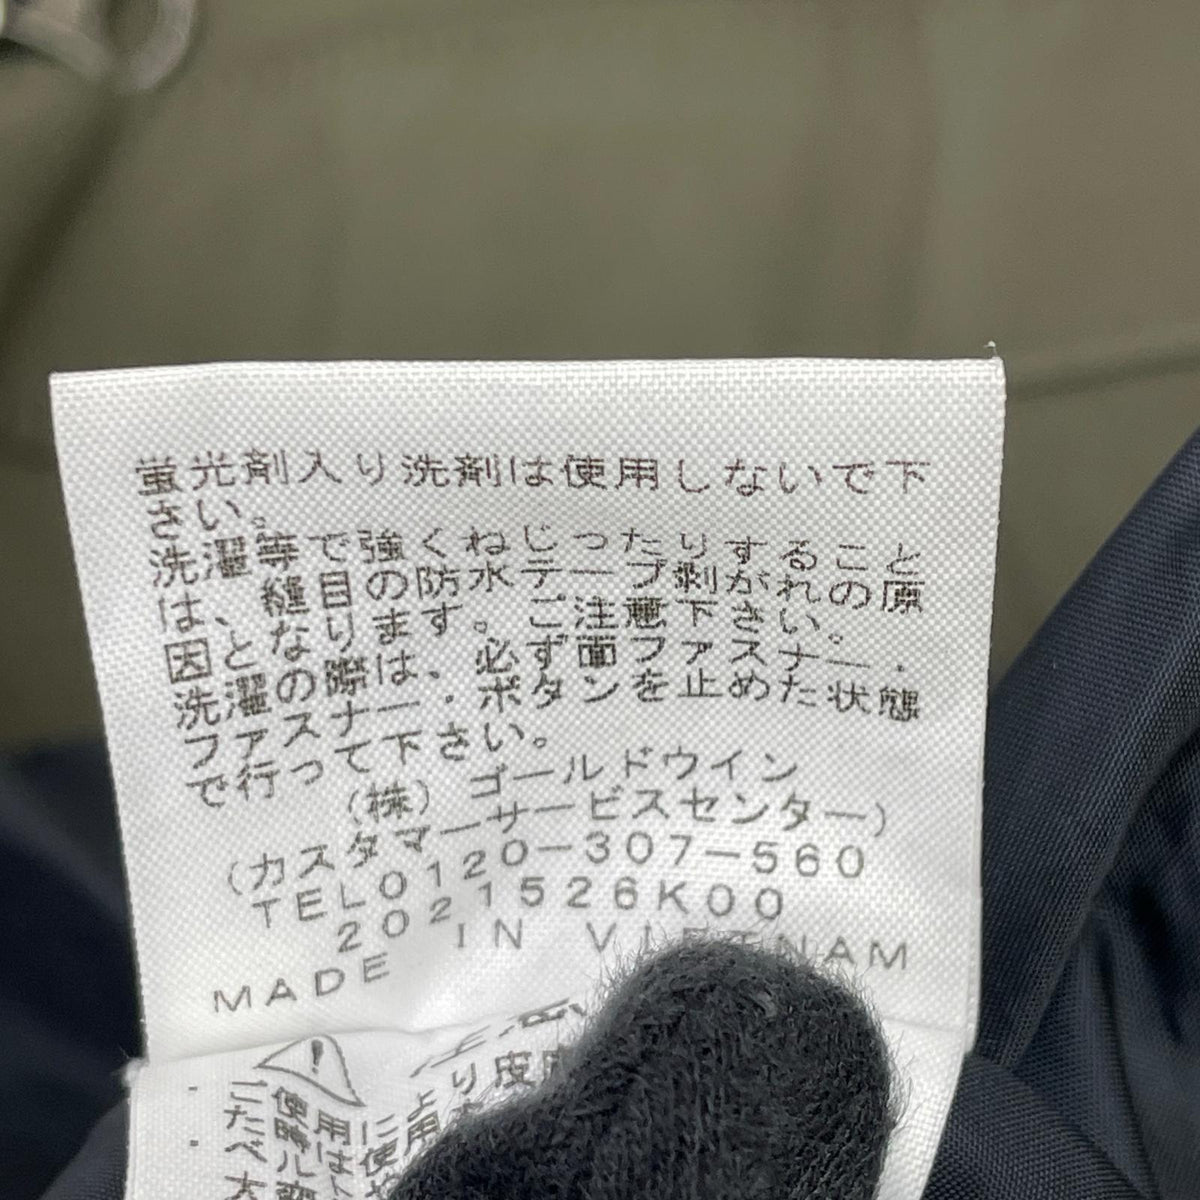 蛍光剤入り洗剤は使用しないで下
さい。
洗濯等で強くねじったりすること
は、縫目の防水テープ剥がれの原
因となります。ご注意下さい。
洗濯の際は、必ず面ファスナー・
ファスナー・ボタンを止めた状態
で行って下さい。
(株)ゴールドウイン
(カスタマーサービスセンター)
TEL0120-307-560
2021526K00
MADE IN VIETNAM